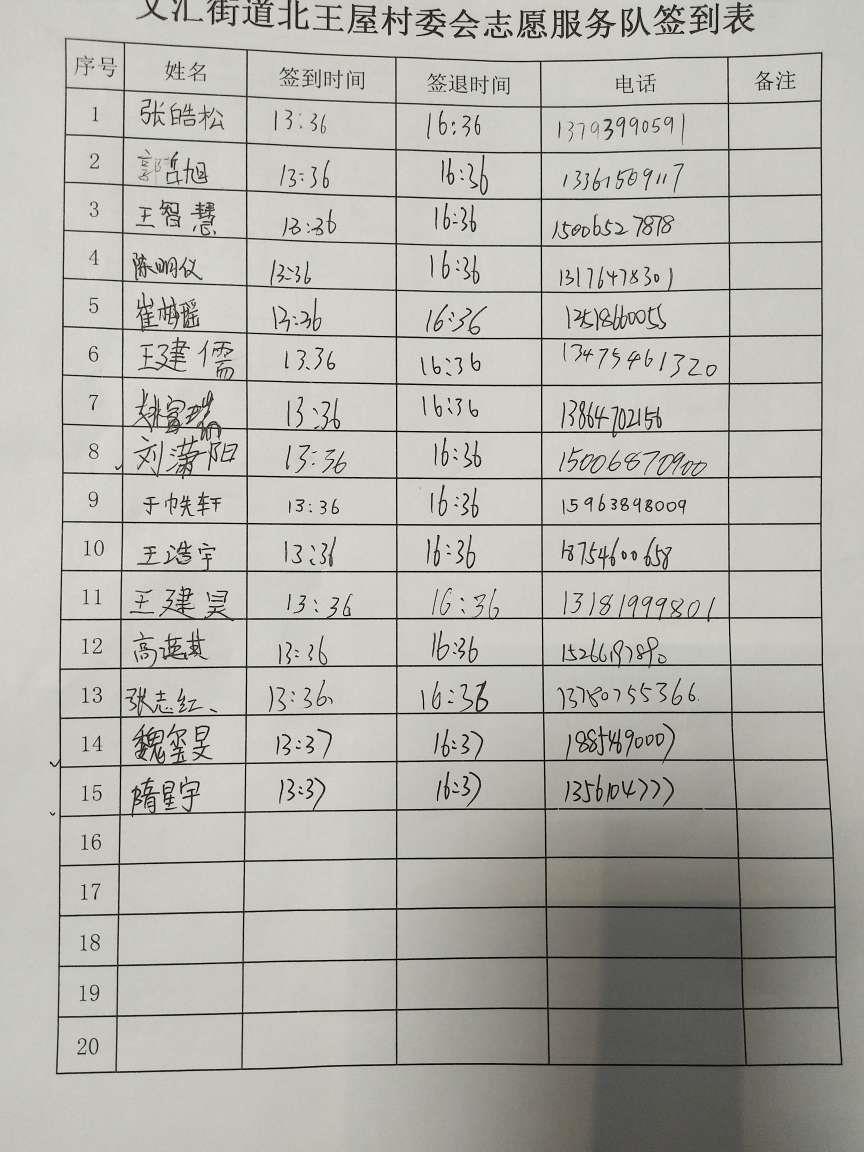 文汇街道北王屋村委会志愿服务队签到表
序号 姓名 签到时间 签退时间 电话 备注
1 张皓松 13:36 16:36 13793990591
2 郭哲旭 13:36 16:36 13361509117
3 王智慧 13:36 16:36 15006527878
4 陈明仪 13:36 16:36 13176478301
5 崔梅瑶 13:36 16:36 12518660055
6 王建儒 13.36 16:36 13475461320
7 13:36 16:36 13864702156
8 刘潇阳 13:36 16:36 15006870900
9 于帙轩 13:36 16:36 15963898009
10 王浩宇 13:36 16:36 18754600658
11 王建昊 13:36 16:36 13181999801
12 高 13:36 16:36
13 张志红、 13:36 16:36 13780755366
14 魏玺旻 13:37 16:37 18854690007
15 隋星宇 13:37 16:37 13561047777
16
17
18
19
20